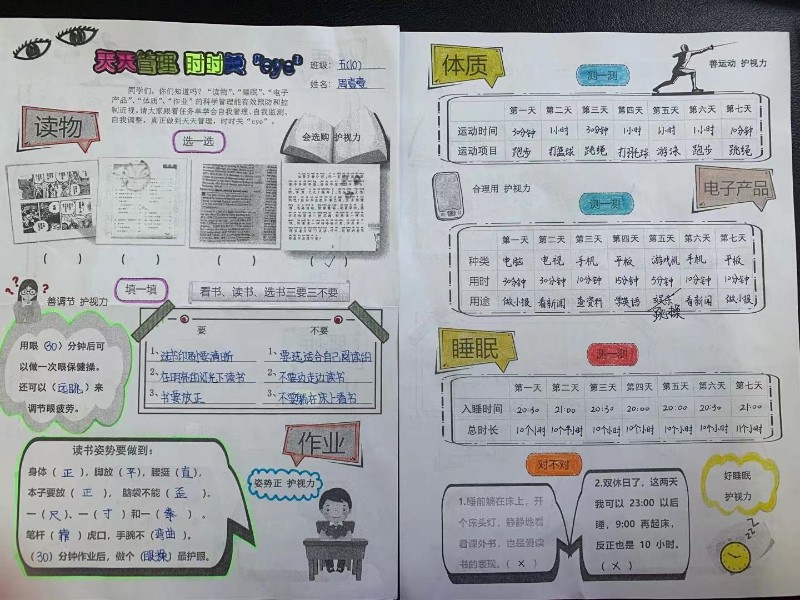 天天管理 时时美 "eye"
班级：五(10)
姓名：
同学们，你们知道吗？"读物"、"睡眠"、"电子
产品"、"体质"、"作业"的科学管理能有效预防和控
制近视。请大家跟着任务单学会自我管理、自我监测、
自我调整，真正做到天天管理，时时美"eye"。
读物
选一选
会选购 护视力
( ) ( ) ( ) (✓)
善调节 护视力
填一填
看书、读书、选书三要三不要
要 不要
1、选书印刷要清晰 1、要选适合自己阅读的
2、在明亮的灯光下读书 2、不要边走边读书
3、书要放正 3、不要躺在床上看书
用眼（30）分钟后可
以做一次眼保健操。
还可以（远眺）来
调节眼疲劳。
作业
读书姿势要做到：
身体（正），脚放（平），腰挺（直），
本子要放（正），脑袋不能（歪）。
一（尺）、一（寸）和一（拳）。
笔杆（靠）虎口，手腕不（弯曲）。
（30）分钟作业后，做个（眼操）最护眼。
姿势正 护视力
体质
测一测
善运动 护视力
第一天 第二天 第三天 第四天 第五天 第六天 第七天
运动时间 30分钟 1小时 30分钟 1小时 1小时 1小时 10分钟
运动项目 跑步 打篮球 跳绳 打羽毛球 游泳 跑步 跳绳
合理用 护视力
测一测
电子产品
第一天 第二天 第三天 第四天 第五天 第六天 第七天
种类 电脑 电视 手机 平板 游戏机 手机 平板
用时 30分钟 30分钟 10分钟 15分钟 5分钟 10分钟 10分钟
用途 做小报 看新闻 查资料 学英语 娱乐 看新闻 做小报
跳操
睡眠
测一测
第一天 第二天 第三天 第四天 第五天 第六天 第七天
入睡时间 20:30 21:00 20:30 20:00 20:00 20:30 21:00
总时长 10个小时 10个半小时 10个小时 10个小时 10个小时 10个小时 11个小时
对不对
1.睡前躺在床上，开
个床头灯，静静地看
看课外书，也是爱读
书的表现。（×）
2.双休日了，这两天
我可以 23:00 以后
睡，9:00 再起床，
反正也是 10 小时。
（×）
好睡眠
护视力